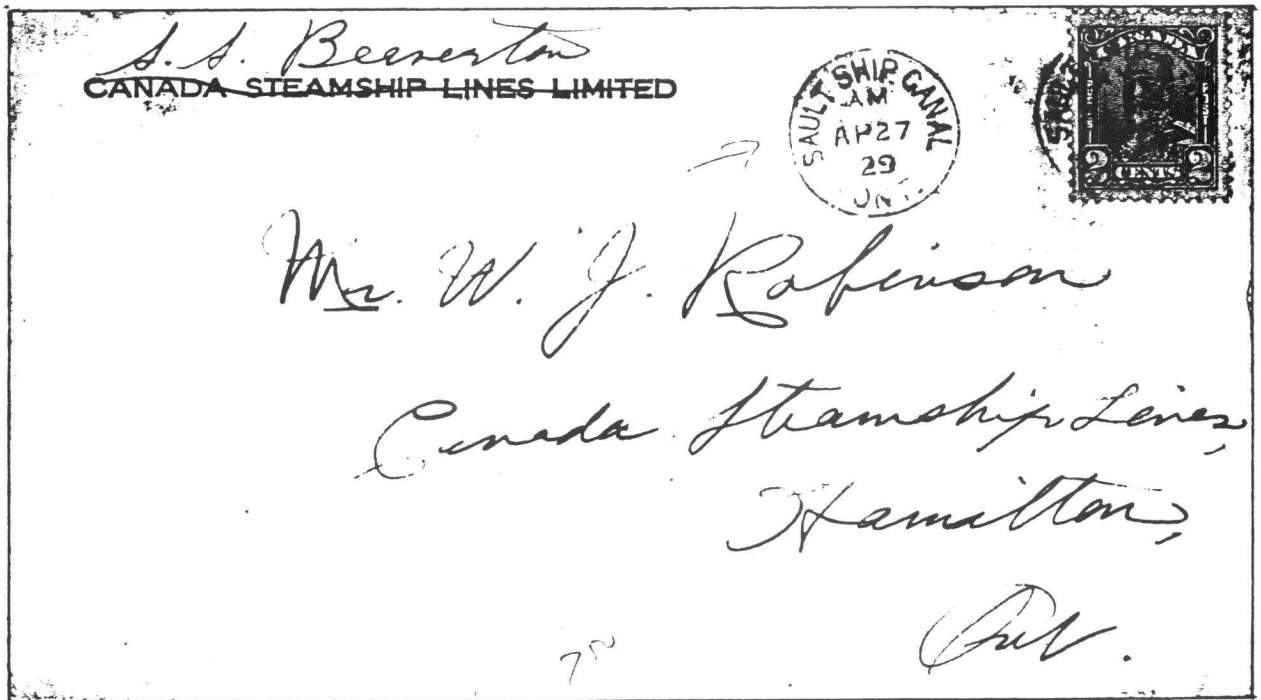 S. S. Beaverton
CANADA STEAMSHIP LINES LIMITED
SAULT SHIP CANAL
AM
AP 27
29
ONT.
CANADA
2 CENTS 2
Mr. W. J. Robinson
Canada Steamship Lines,
Hamilton,
Ont.